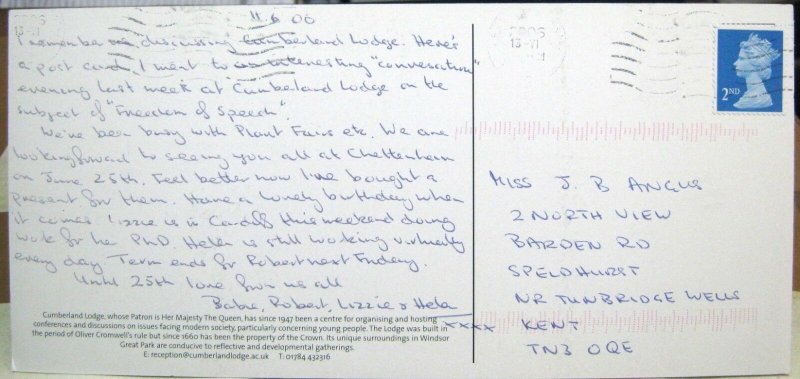 11.6.00
I remember discussing Cumberland Lodge. Here's
a post card, I went to an interesting "conversation"
evening last week at Cumberland Lodge on the
subject of "Freedom of Speech".
We've been busy with Plant Fairs etc. We are
looking forward to seeing you all at Cheltenham
on June 25th. Feel better now I've bought a
present for them. Have a lovely birthday when
it comes. Lizzie is in Cardiff this weekend doing
work for her PhD. Helen is still working virtually
every day. Term ends for Robert next Friday.
Until 25th love from us all
Robert, Lizzie & Helen
xxxx
Cumberland Lodge, whose Patron is Her Majesty The Queen, has since 1947 been a centre for organising and hosting
conferences and discussions on issues facing modern society, particularly concerning young people. The Lodge was built in
the period of Oliver Cromwell's rule but since 1660 has been the property of the Crown. Its unique surroundings in Windsor
Great Park are conducive to reflective and developmental gatherings.
E: reception@cumberlandlodge.ac.uk T: 01784 432316
2ND
MISS J. B ANGUS
2 NORTH VIEW
BARDEN RD
SPELDHURST
NR TUNBRIDGE WELLS
KENT
TN3 0QE